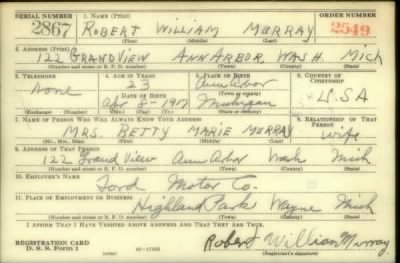 SERIAL NUMBER 1. NAME (Print) ORDER NUMBER
2867 ROBERT WILLIAM MURRAY 2549
(First) (Middle) (Last)
2. ADDRESS (Print)
122 GRANDVIEW ANN ARBOR WASH. MICH
(Number and street or R. F. D. number) (Town) (County) (State)
3. TELEPHONE 4. AGE IN YEARS 5. PLACE OF BIRTH 6. COUNTRY OF CITIZENSHIP
none 23 Ann Arbor
DATE OF BIRTH (Town or county)
Apr 8- 1917 Michigan U.S.A
(Exchange) (Number) (Mo.) (Day) (Yr.) (State or country)
7. NAME OF PERSON WHO WILL ALWAYS KNOW YOUR ADDRESS 8. RELATIONSHIP OF THAT PERSON
MRS. BETTY MARIE MURRAY wife
(Mr., Mrs., Miss) (First) (Middle) (Last)
9. ADDRESS OF THAT PERSON
122 Grand View Ann Arbor Wash Mich
(Number and street or R. F. D. number) (Town) (County) (State)
10. EMPLOYER'S NAME
Ford Motor Co.
11. PLACE OF EMPLOYMENT OR BUSINESS
Highland Park Wayne Mich
(Number and street or R. F. D. number) (Town) (County) (State)
I AFFIRM THAT I HAVE VERIFIED ABOVE ANSWERS AND THAT THEY ARE TRUE.
REGISTRATION CARD
D. S. S. FORM 1 Robert William Murray
(over) (Registrant's signature)